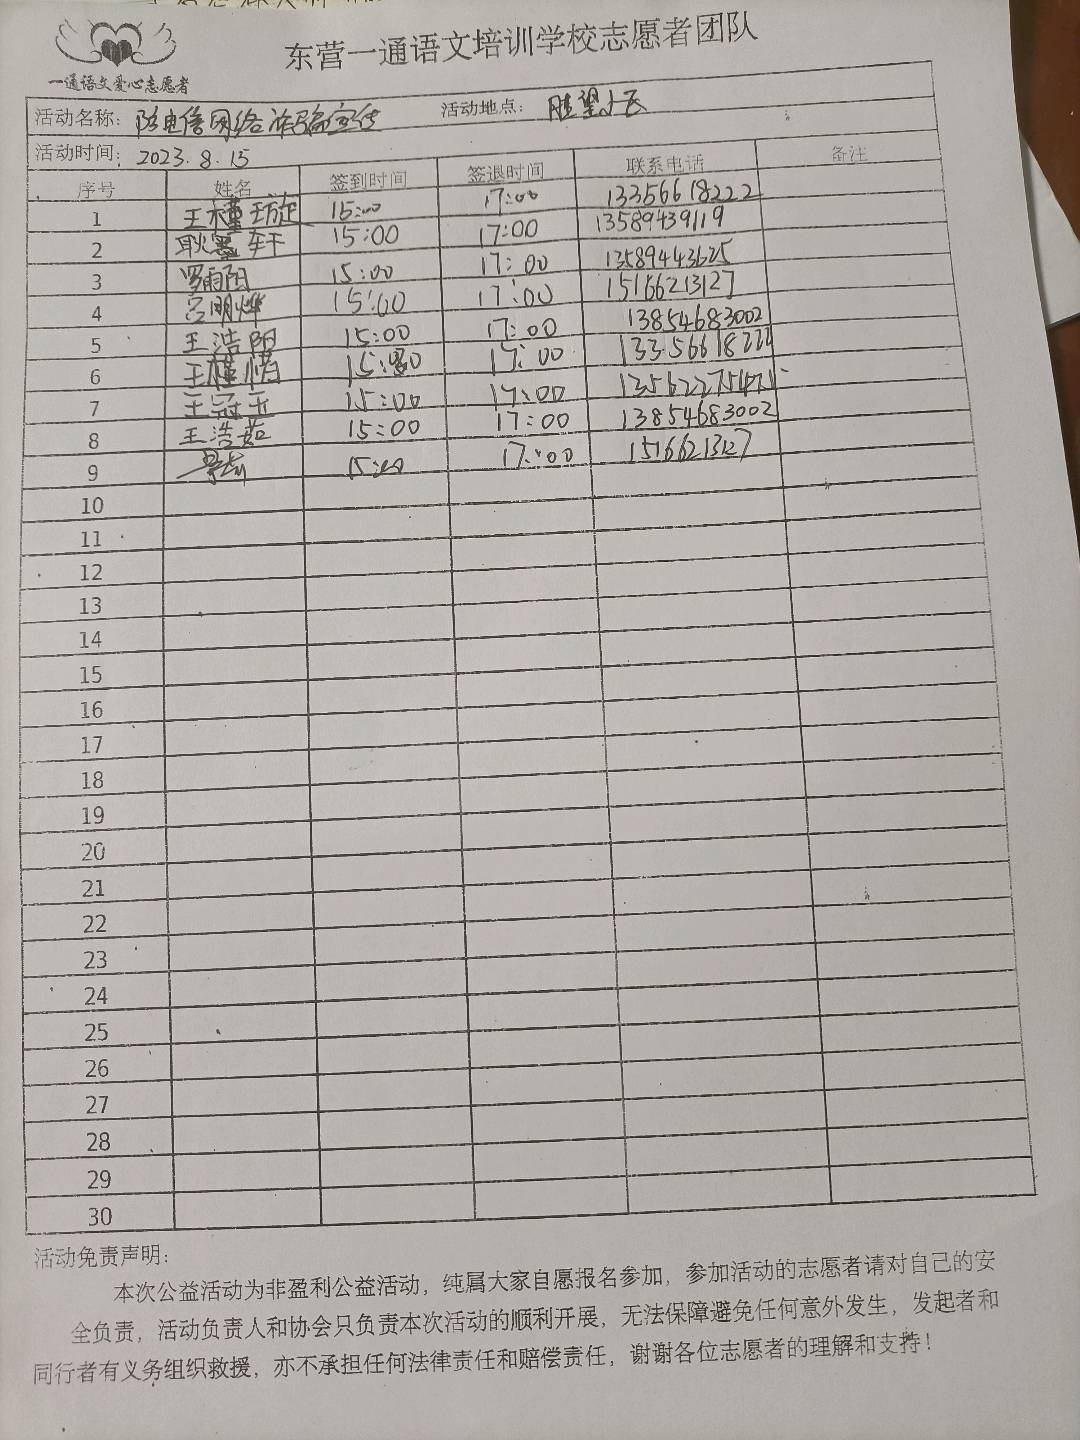 东营一通语文培训学校志愿者团队
一通语文爱心志愿者
活动名称：防电信网络诈骗宣传 活动地点：胜望小区
活动时间：2023.8.15
序号 姓名 签到时间 签退时间 联系电话 备注
1 王槿璇 15:00 17:00 13356618222
2 耿墨轩 15:00 17:00 13589439119
3 罗雨阳 15:00 17:00 13589443625
4 宫明烨 15:00 17:00 15166213127
5 王浩阳 15:00 17:00 13854683002
6 王槿惜 15:00 17:00 13356618222
7 王冠玉 15:00 17:00
8 王浩茹 15:00 17:00 13854683002
9 15:00 17:00 15166213127
10
11
12
13
14
15
16
17
18
19
20
21
22
23
24
25
26
27
28
29
30
活动免责声明：
本次公益活动为非盈利公益活动，纯属大家自愿报名参加，参加活动的志愿者请对自己的安
全负责，活动负责人和协会只负责本次活动的顺利开展，无法保障避免任何意外发生，发起者和
同行者有义务组织救援，亦不承担任何法律责任和赔偿责任，谢谢各位志愿者的理解和支持！